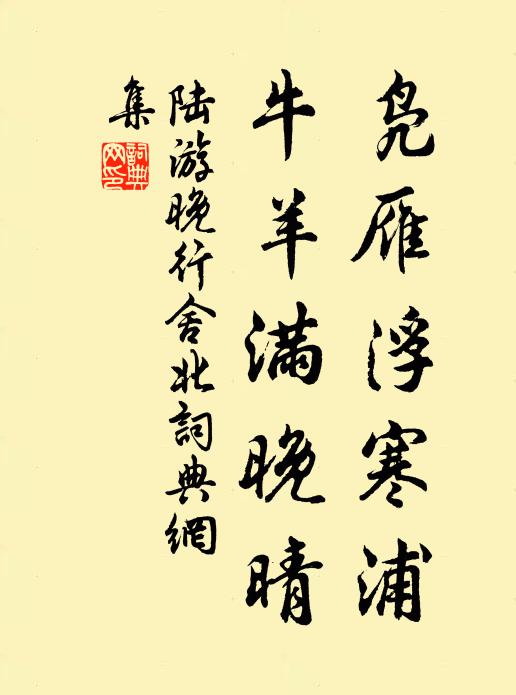 凫雁浮寒浦
牛羊满晚晴
陆游晚行舍北詞典網
集
詞典網印